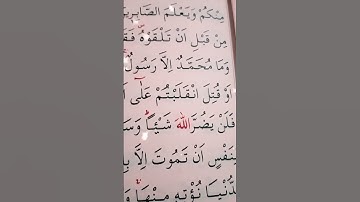 مِنْكُمْ وَيَعْلَمَ الصَّابِرِينَ
مِنْ قَبْلِ اَنْ تَلْقَوْهُ فَقَ
وَمَا مُحَمَّدٌ اِلَّا رَسُولٌ
اَوْ قُتِلَ انْقَلَبْتُمْ عَلٰٓى
فَلَنْ يَضُرَّ اللّٰهَ شَيْـًٔا وَسَ
لِنَفْسٍ اَنْ تَمُوتَ اِلَّا بِاِ
الدُّنْيَا نُؤْتِهِ مِنْهَا وَ